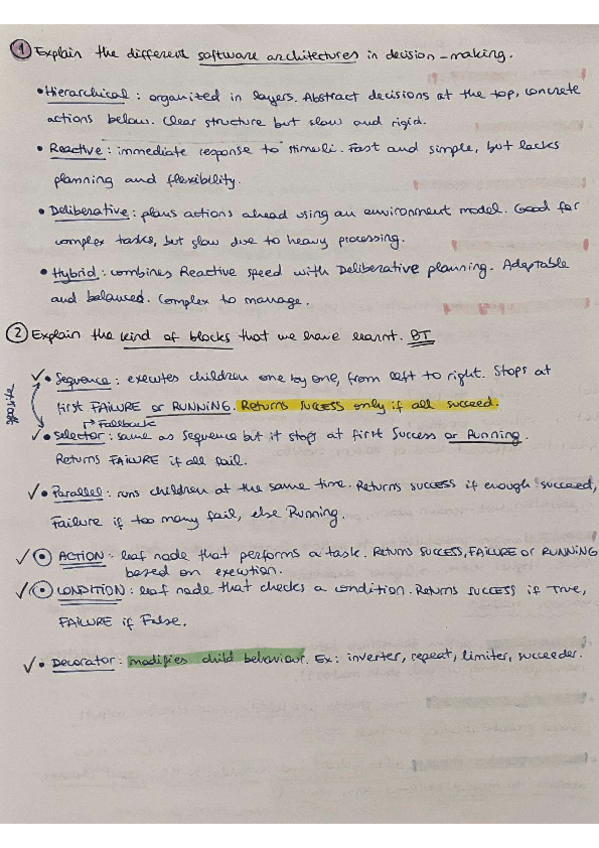 ① Explain the different software architectures in decision-making.
• Hierarchical: organized in layers. Abstract decisions at the top, concrete
actions below. Clear structure but slow and rigid.
• Reactive: immediate response to stimuli. Fast and simple, but lacks
planning and flexibility.
• Deliberative: plans actions ahead using an environment model. Good for
complex tasks, but slow due to heavy processing.
• Hybrid: combines Reactive speed with Deliberative planning. Adaptable
and balanced. Complex to manage.
② Explain the kind of blocks that we have learnt. BT
✓• Sequence: executes children one by one, from left to right. Stops at
first FAILURE or RUNNING. Returns SUCCESS only if all succeed.
↳ Fallback
✓• Selector: same as Sequence but it stops at first Success or Running.
Returns FAILURE if all fail.
✓• Parallel: runs children at the same time. Returns success if enough succeed,
Failure if too many fail, else Running.
✓• ACTION: leaf node that performs a task. Returns SUCCESS, FAILURE or RUNNING
based on execution.
✓• CONDITION: leaf node that checks a condition. Returns SUCCESS if True,
FAILURE if False.
✓• Decorator: modifies child behaviour. Ex: inverter, repeat, limiter, succeeder.